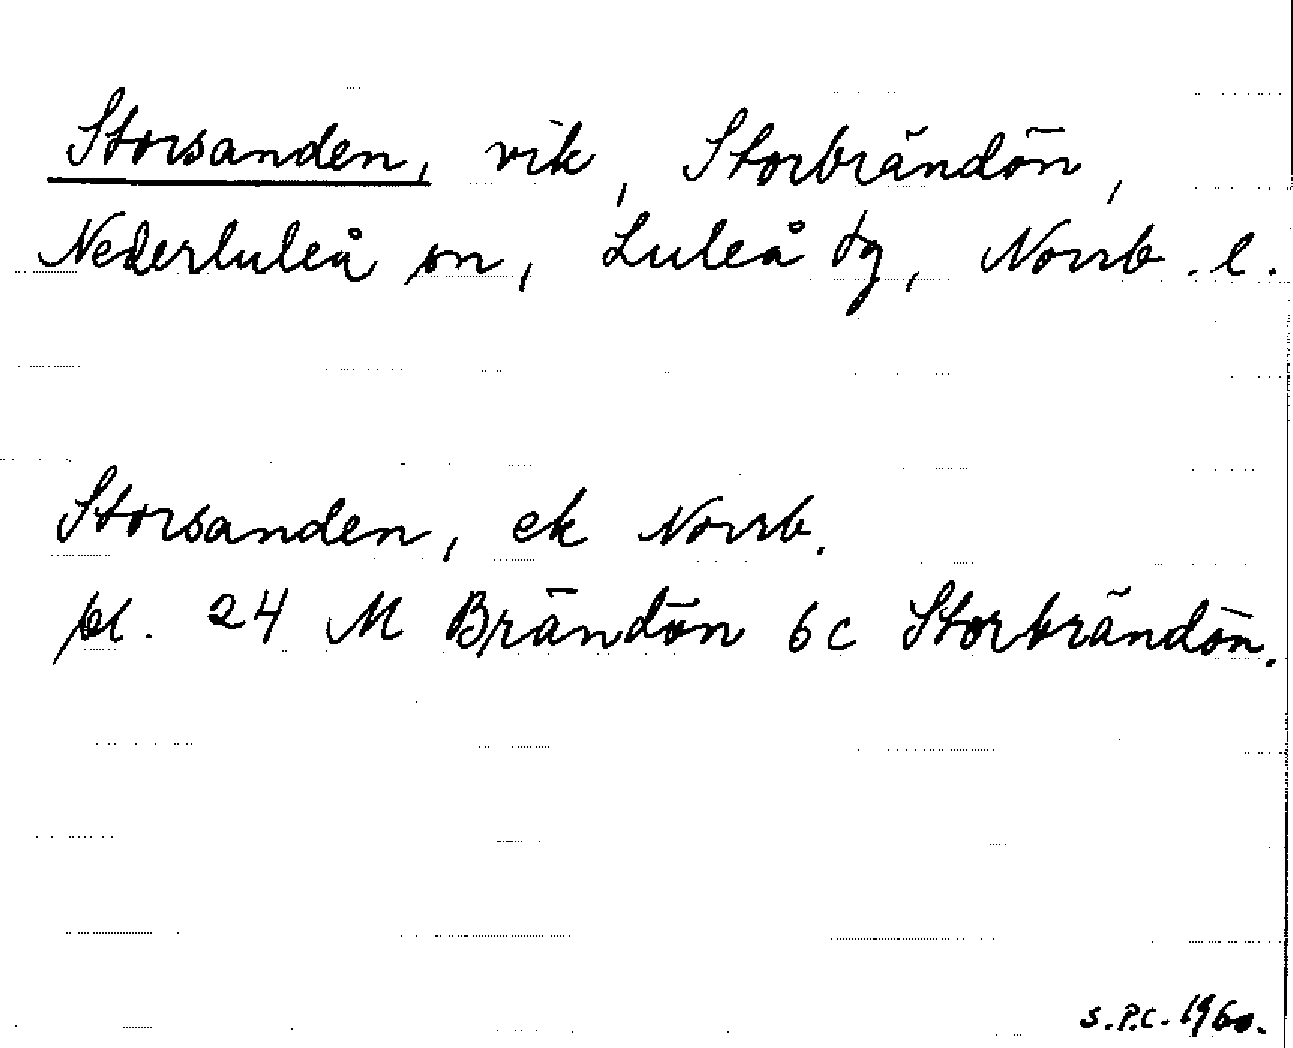 Storsanden, vik, Storbrändön,
Nederluleå sn, Luleå tg, Norrb. l.
Storsanden, ek Norrb.
bl. 24 M Brändön 6c Storbrändön.
S.P.C. 1960.